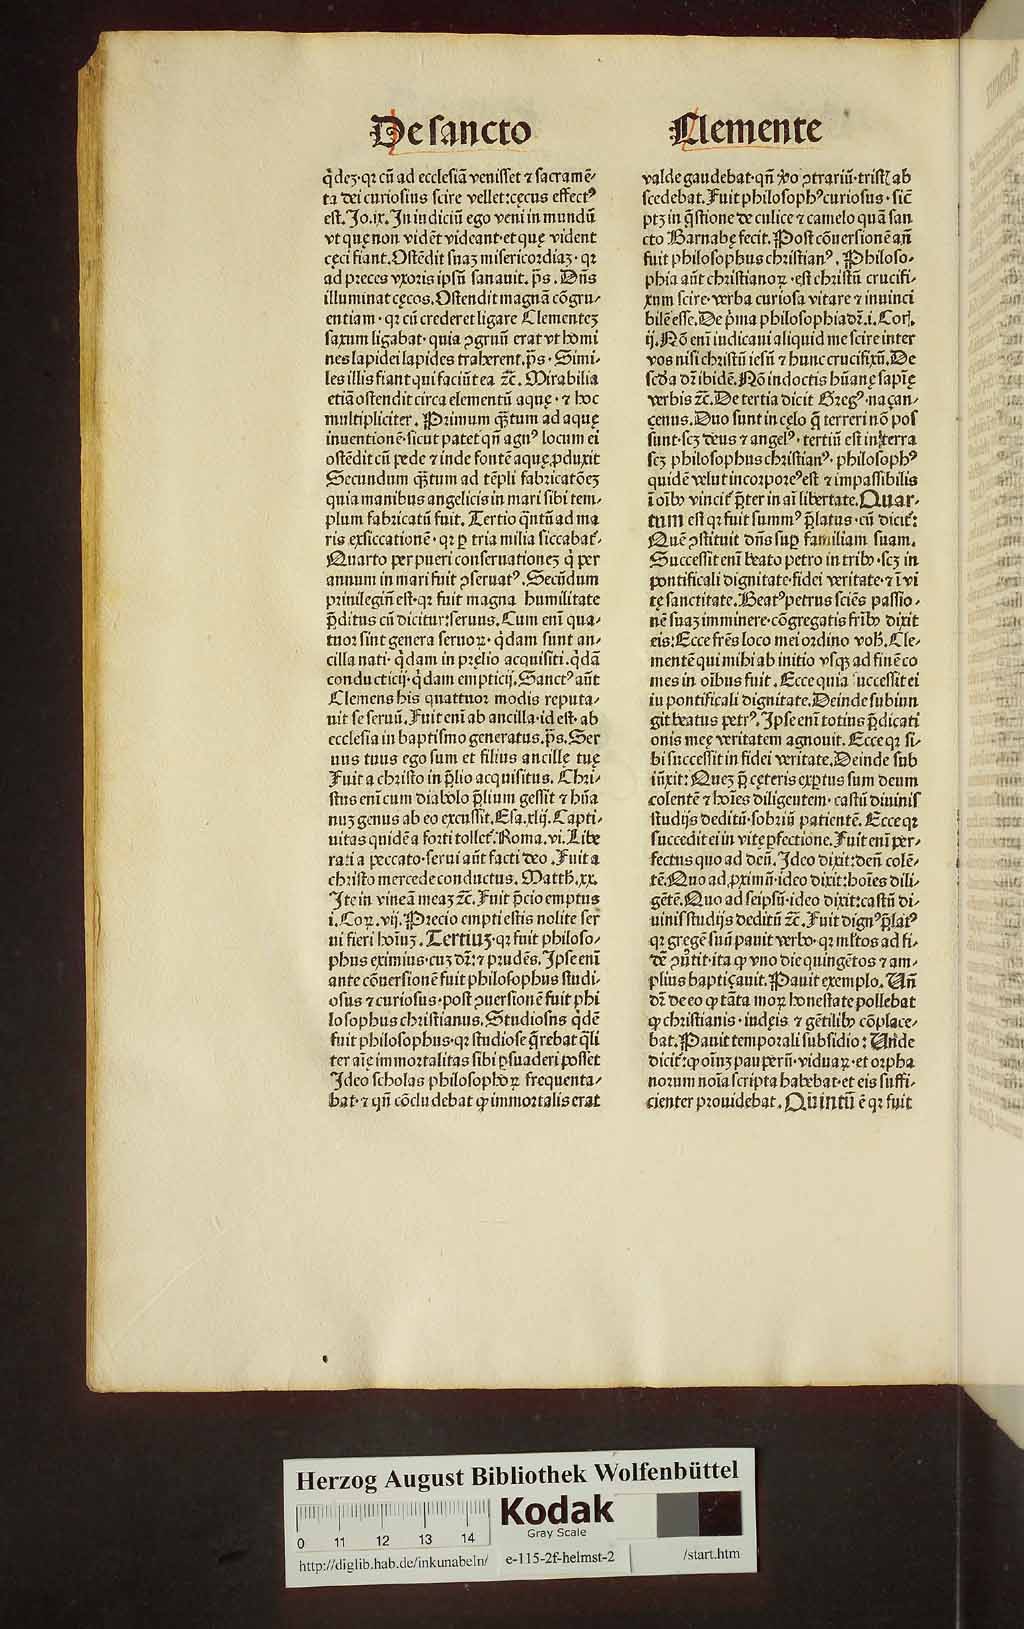 De sancto
q̇dez·qꝛ cū ad ecclesiā venisset ⁊ sacramē-
ta dei curiosius scire vellet:cęcus effectꝰ
est. Jo.ix. In iudiciū ego veni in mundū
vt quę non vidēt videant·et quę vident
cęci fiant. Ostēdit suaz misericordiaz·qꝛ
ad preces vxoris ipsū sanauit. p̄s. Dn̄s
illuminat cęcos. Ostendit magnā cōgru-
entiam·qꝛ cū crederet ligare Clementez
saxum ligabat·quia ꝯgruū erat vt homi
nes lapidei lapides traherent. p̄s·Simi-
les illis fiant qui faciūt ea ⁊c̄. Mirabilia
etiā ostendit circa elementū aquę·⁊ hoc
multipliciter. Primum q̄tum ad aquę
inuentionē·sicut patet qn̄ agnꝰ locum ei
ostēdit cū pede ⁊ inde fontē aquę ꝓduxit
Secundum q̄tum ad tēpli fabricatōez
quia manibus angelicis in mari sibi tem-
plum fabricatū fuit. Tertio q̄ntū ad ma
ris exsiccationē·qꝛ ꝑ tria milia siccabat᷑·
Quarto per pueri conseruationez q̇ per
annum in mari fuit ꝯseruatꝰ. Secūdum
priuilegiū est·qꝛ fuit magna humilitate
p̄ditus cū dicitur:seruus. Cum enī qua-
tuor sint genera seruoꝝ·q̇dam sunt an-
cilla nati·q̇dam in pręlio acquisiti·q̇dā
conducticij·q̇dam empticij. Sanctꝰ aūt
Clemens his quattuor modis reputa-
uit se seruū. Fuit enī ab ancilla·id est·ab
ecclesia in baptismo generatus. p̄s. Ser
uus tuus ego sum et filius ancillę tuę
Fuit a christo in p̄lio acquisitus. Chri-
stus enī cum diabolo p̄lium gessit ⁊ hūa
nuz genus ab eo excussit. Esa.xlij. Capti-
uitas quidē a forti tollet᷑. Roma.vi. Libe
rati a peccato·serui aūt facti deo. Fuit a
christo mercede conductus. Matth̄.xx.
Ite in vineā meaz ⁊c̄. Fuit p̄cio emptus
i.Coꝝ.vij. Precio empti estis nolite ser
ui fieri hoīuz. Tertiuz·qꝛ fuit philoso-
phus eximius·cuz dr̄:⁊ prudēs. Ipse enī
ante cōuersionē fuit philosophus studi-
osus ⁊ curiosus·post ꝯuersionē fuit phi
losophus christianus. Studiosus q̇dē
fuit philosophus·qꝛ studiose q̄rebat q̄li
ter aīę immortalitas sibi ꝑsuaderi posset
Ideo scholas philosophoꝝ frequenta-
bat·⁊ qn̄ cōcludebat ꝙ immortalis erat
Clemente
valde gaudebat·qn̄ ꝟo ꝯtrariū·tristꝭ ab
scedebat. Fuit philosophꝰ curiosus·sic̄
ptꝫ in q̄stione de culice ⁊ camelo quā san
cto Barnabę fecit. Post cōuersionē aūt
fuit philosophus christianꝰ. Philoso-
phia aūt christianoꝝ·est christū crucifi-
xum scire·verba curiosa vitare ⁊ inuinci
bilē esse. De p̓ma philosophia dr̄.i.Coꝝ.
ij. Nō enī iudicaui aliquid me scire inter
vos nisi christū iesū ⁊ hunc crucifixū. De
scd̄a dr̄ ibidē. Nō in doctis hūanę sapīę
verbis ⁊c̄. De tertia dicit Gregꝰ naçan-
çenus. Duo sunt in cęlo q̄ terreri nō pos
sunt·scꝫ deus ⁊ angelꝰ·tertiū est in terra
scꝫ philosophus christianꝰ·philosophꝰ
quidē velut incorporeꝰ est ⁊ impassibilis
ī oībꝰ vincit᷑ p̄ter in aī libertate. Quar-
tum est qꝛ fuit summꝰ p̄latus·cū dicit᷑:
Quē ꝯstituit dn̄s suꝑ familiam suam.
Successit enī beato petro in tribꝰ·scꝫ in
pontificali dignitate·fidei veritate·⁊ ī vi
tę sanctitate. Beatꝰ petrus sciēs passio-
nē suaz imminere·cōgregatis fr̄ibꝰ dixit
eis: Ecce fr̄es loco mei ordino vob̄. Cle-
mentē qui mihi ab initio vsqꝫ ad finē co
mes in oībus fuit. Ecce quia successit ei
in pontificali dignitate. Deinde subiun
git beatus petrꝰ. Ipse enī totius p̄dicati
onis meę veritatem agnouit. Ecce qꝛ si-
bi successit in fidei veritate. Deinde sub
iūxit: Quez p̄ cęteris exꝑtus sum deum
colentē ⁊ hoīes diligentem·castū diuinis
studijs deditū·sobriū patientē. Ecce qꝛ
succedit ei in vitę ꝑfectione. Fuit enī per-
fectus quo ad deū. Ideo dixit:deū colē-
tē. Quo ad ꝓximū·ideo dixit:hoīes dili-
gētē. Quo ad seipsū·ideo dixit:castū di-
uinis studijs deditū ⁊c̄. Fuit dignꝰ p̄latꝰ
qꝛ gregē suū pauit verbo·qꝛ ml̄tos ad fi-
dē ꝯūtit·ita ꝙ vno die quingētos ⁊ am-
plius baptiçauit. Pauit exemplo. Un̄
dr̄ de eo ꝙ tāta moꝝ honestate pollebat
ꝙ christianis·iudęis ⁊ gētilibꝰ cōplace-
bat. Pauit temporali subsidio: Unde
dicit᷑:ꝙ oīuꝫ pauperū·viduaꝝ·et orpha
norum noīa scripta habebat·et eis suffi-
cienter prouidebat. Quintū ē qꝛ fuit
Herzog August Bibliothek Wolfenbüttel
Kodak
Gray Scale
0 11 12 13 14
http://diglib.hab.de/inkunabeln/ e-115-2f-helmst-2 /start.htm